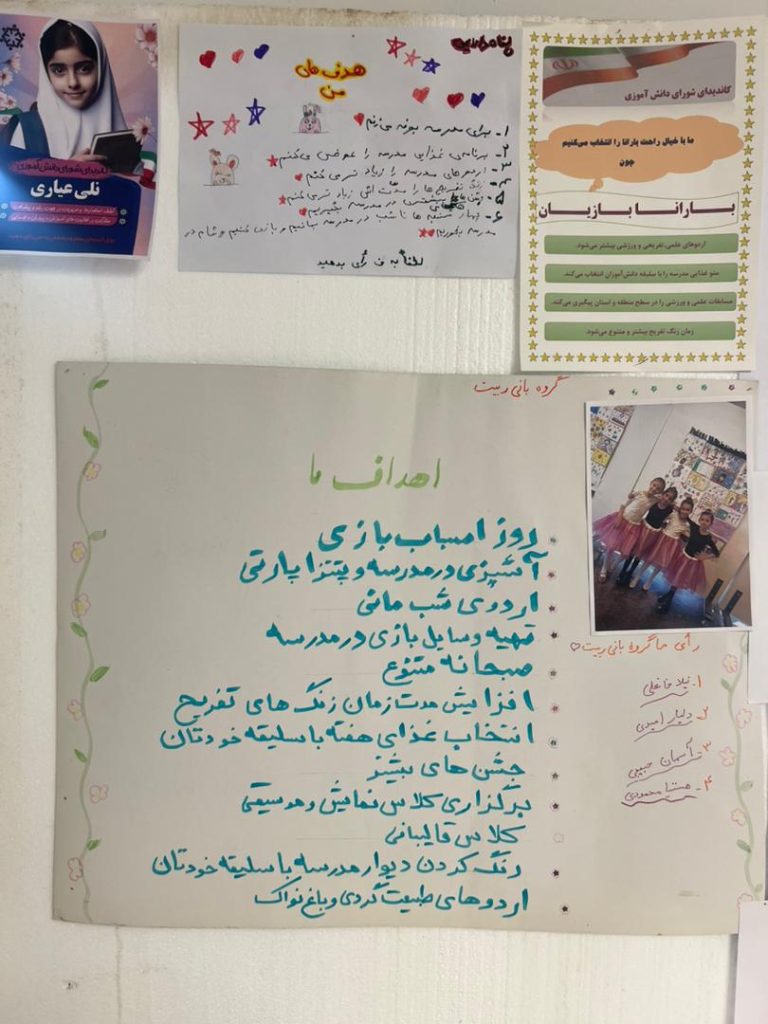 کاندیدای شورای دانش آموزی
نلی عیاری
هدف های
من
۱ـ برای مدرسه بوفه می‌زنم
۲ـ برنامه‌ی غذایی مدرسه را عوض می‌کنم
۳ـ اردوهای مدرسه را زیاد تر می‌کنم
۴ـ زنگ تفریح ها را ساعت اش زیاد تر می‌کنم
۵ـ در مدرسه بگیریم
۶ـ چهار شنبه ها تا شب در مدرسه بمانیم و بازی کنیم و شام در
مدرسه بخوریم
لطفاً به من رأی بدهید
کاندیدای شورای دانش آموزی
ما با خیال راحت بارانا را انتخاب می‌کنیم
چون
بارانا بازیان
اردوهای علمی، تفریحی و ورزشی بیشتر می‌شود.
منو غذایی مدرسه را با سلیقه دانش‌آموزان انتخاب می‌کند.
مسابقات علمی و ورزشی را در سطح منطقه و استان پیگیری می‌کند.
زمان زنگ تفریح بیشتر و متنوع می‌شود.
گروه بانی ربیت
اهداف ما
روز اسباب بازی
آشپزی در مدرسه و پیتزا پارتی
اردوی شب مانی
تهیه وسایل بازی در مدرسه
صبحانه متنوع
افزایش مدت زمان زنگ های تفریح
انتخاب غذای هفته با سلیقه خودتان
جشن های بیشتر
برگزاری کلاس نمایش و موسیقی
کلاس قالیبافی
رنگ کردن دیوار مدرسه با سلیقه خودتان
اردوهای طبیعت گردی و باغ نواک
رأی ما گروه بانی ربیت
۱. نیلا خانعلی
۲ـ دلیار امیدی
۳ـ آسمان حبیبی
۴ـ محمودی